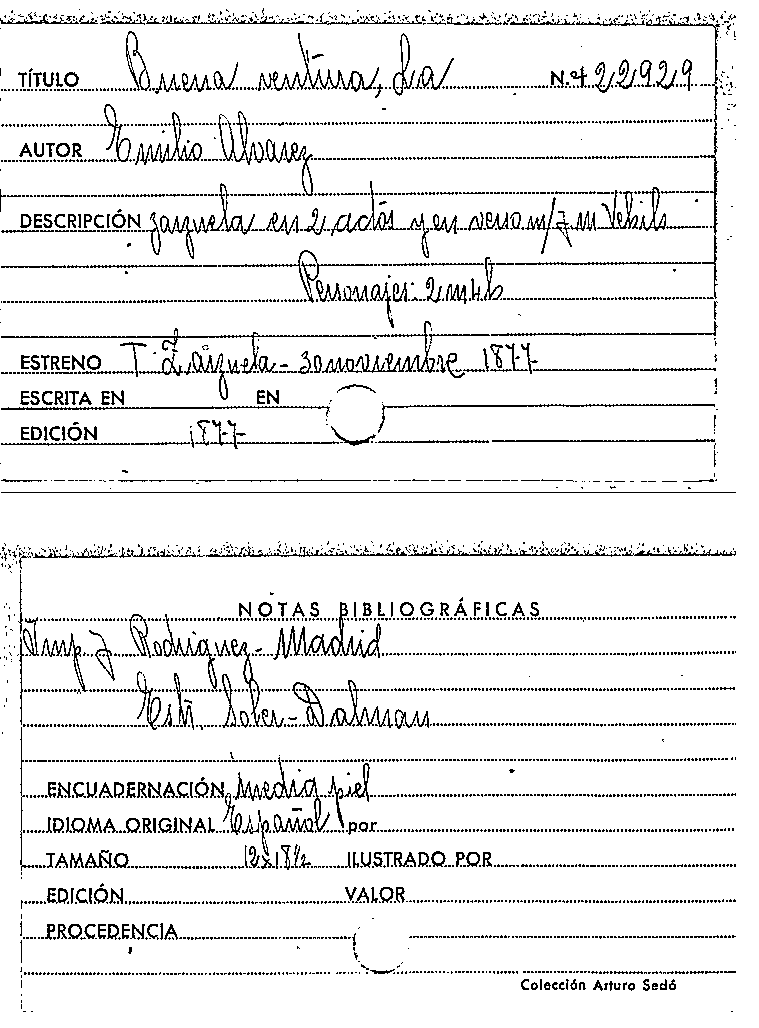 TÍTULO Buena ventura, La N.º 22929
AUTOR Emilio Alvarez
DESCRIPCIÓN zarzuela en 2 actos y en verso m/ J M Vehils
Personajes: 2 m 4 h
ESTRENO T. Zarzuela - 30 noviembre 1877
ESCRITA EN EN
EDICIÓN 1877
NOTAS BIBLIOGRÁFICAS
Imp J Rodriguez - Madrid
Soler - Dalmau
ENCUADERNACIÓN media piel
IDIOMA ORIGINAL Español por
TAMAÑO 12x18½ ILUSTRADO POR
EDICIÓN VALOR
PROCEDENCIA
Colección Arturo Sedó